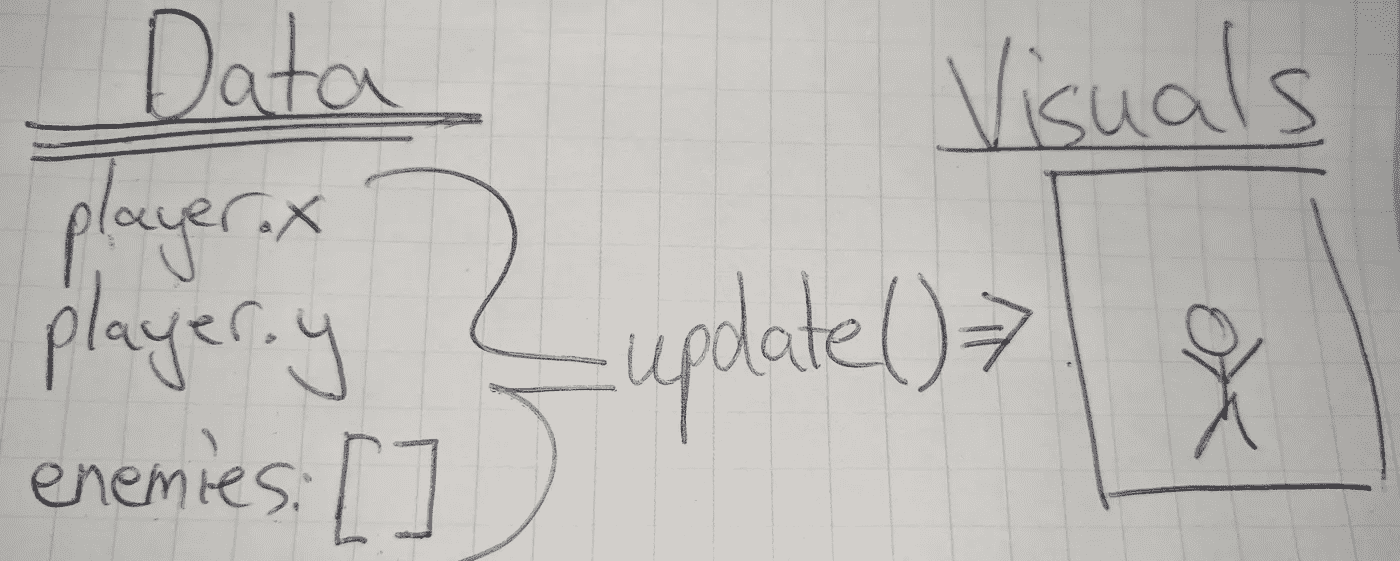 Data
player.x
player.y
enemies: []
update() =>
Visuals